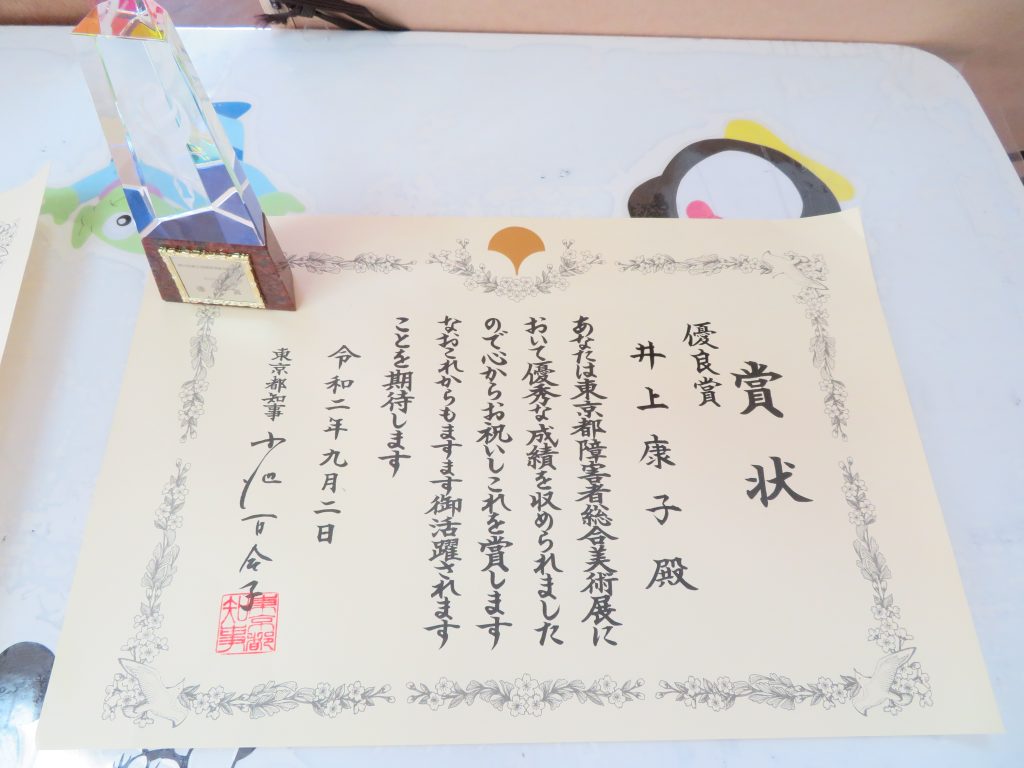 賞状
優良賞
井上康子殿
あなたは東京都障害者総合美術展に
おいて優秀な成績を収められました
ので心からお祝いしこれを賞します
なおこれからもますます御活躍されます
ことを期待します
令和二年九月二日
東京都知事 小池百合子
東京都
知事